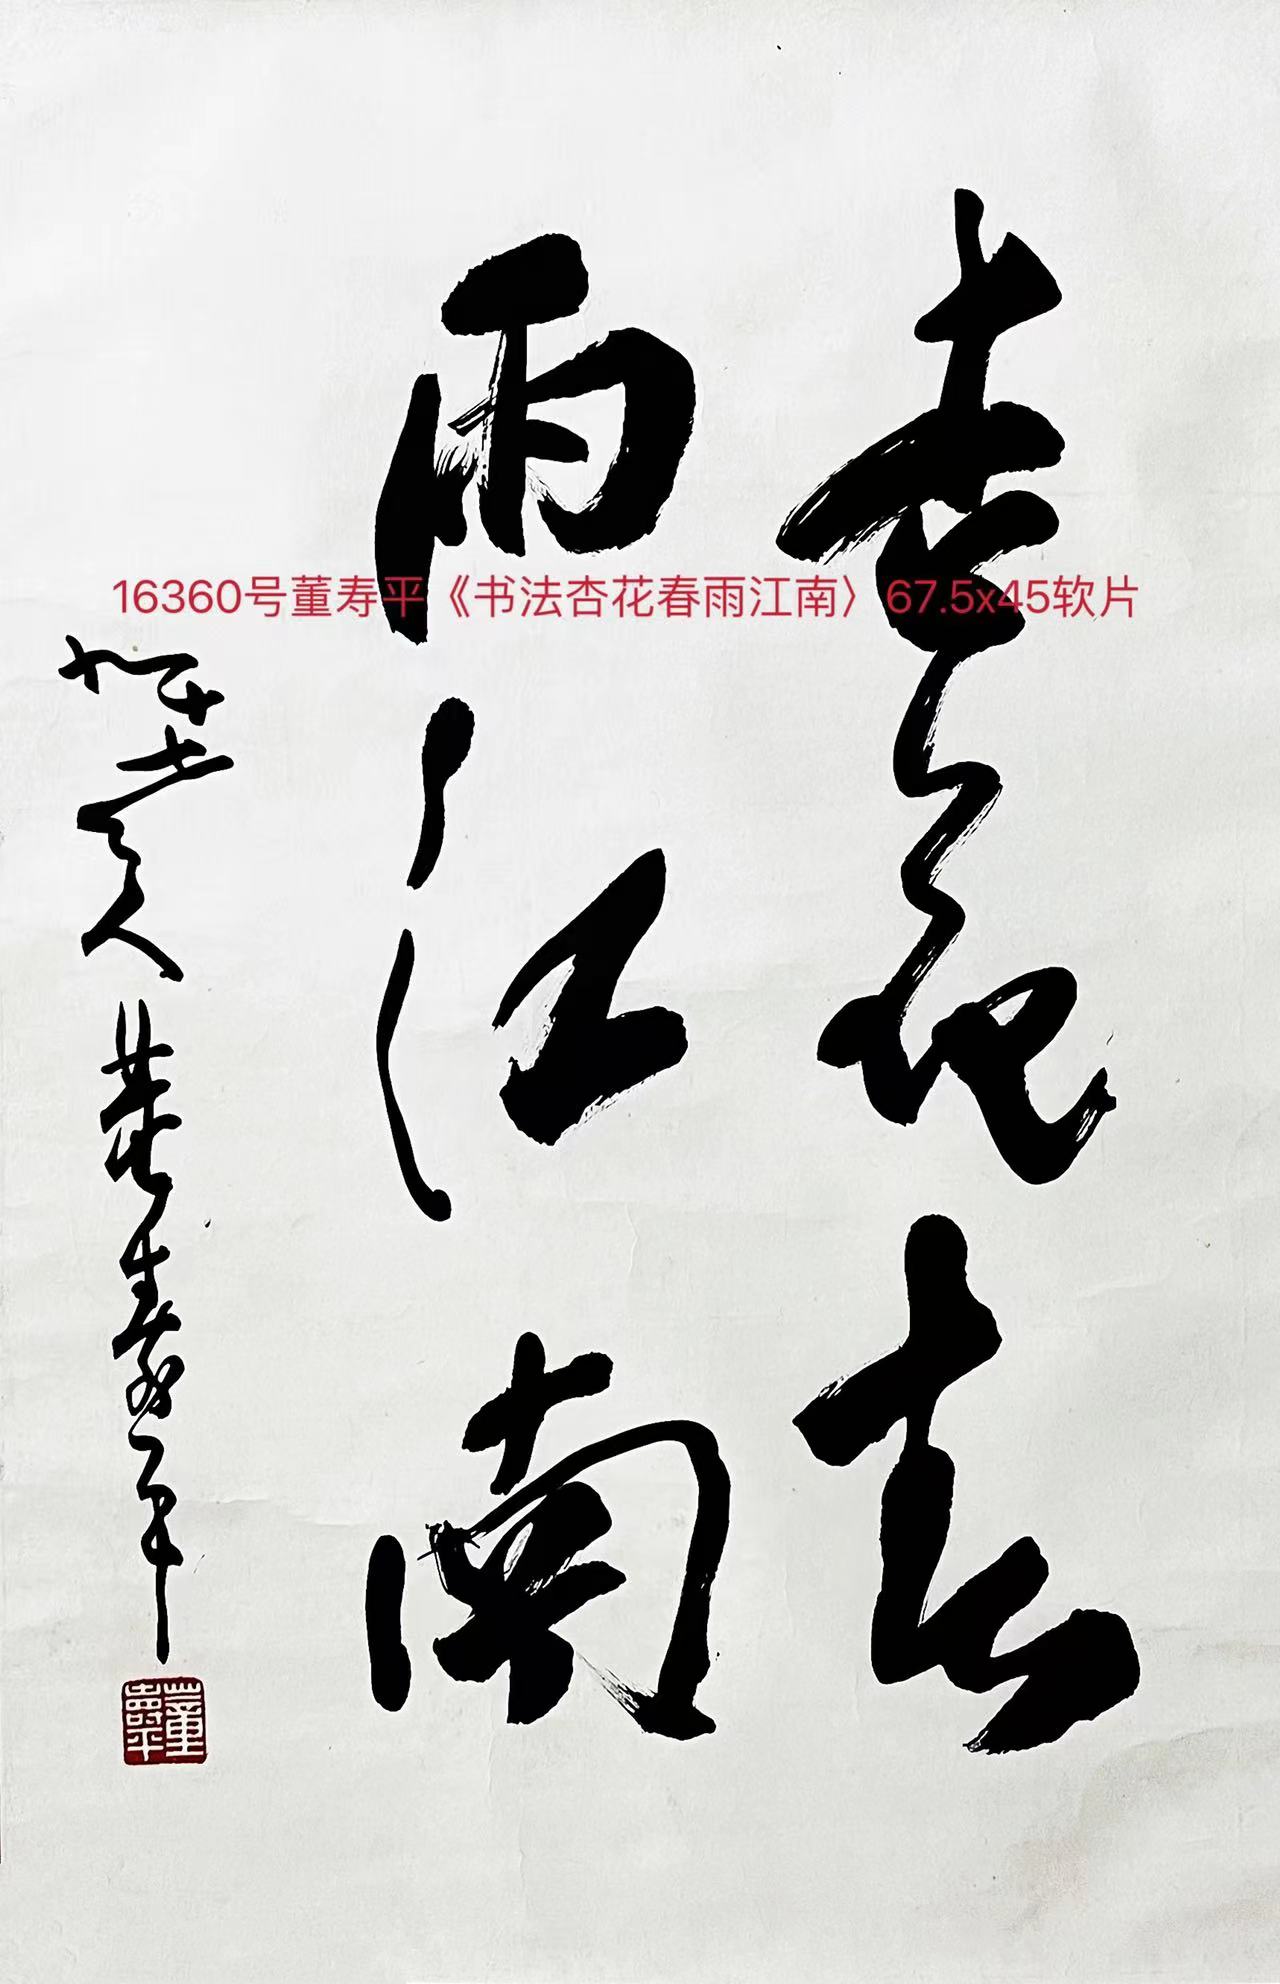 杏花春
雨江南
八十七叟
董寿平
董壽平
16360号董寿平《书法杏花春雨江南〉67.5x45软片